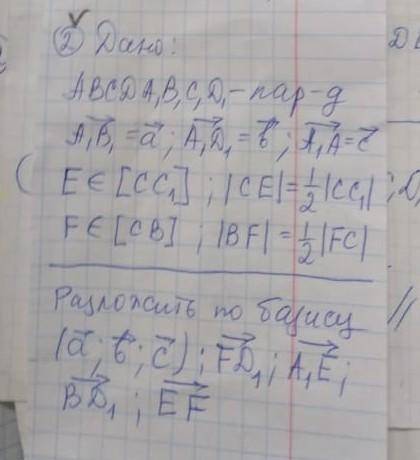 ② Дано:
ABCDA₁B₁C₁D₁ - пар-д
A₁B₁ = a⃗ ; A₁D₁ = b⃗ ; A₁A = c⃗
E ∈ [CC₁] ; |CE| = 1/2 |CC₁|
F ∈ [CB] ; |BF| = 1/2 |FC|
Разложить по базису
(a⃗ ; b⃗ ; c⃗) ; FD₁ ; A₁E ;
BD₁ ; EF